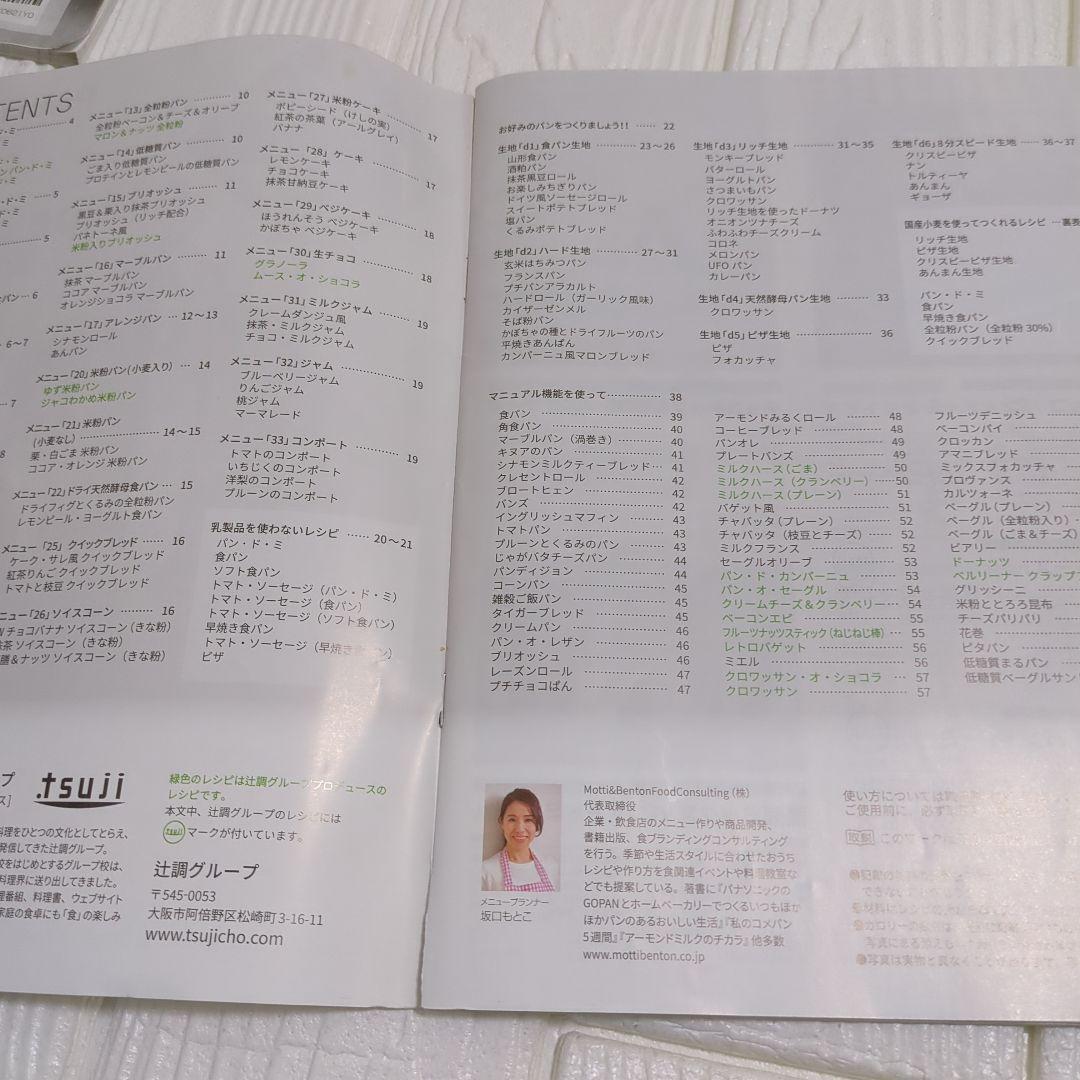 TENTS
4
5
5
6
6～7
7
メニュー「13」全粒粉パン ………… 10
全粒粉ベーコン＆チーズ＆オリーブ
マロン＆ナッツ 全粒粉
メニュー「14」低糖質パン ………… 10
ごま入り低糖質パン
プロテインとレモンピールの低糖質パン
メニュー「15」ブリオッシュ ………… 11
黒豆＆栗入り抹茶ブリオッシュ
ブリオッシュ（リッチ配合）
パネトーネ風
米粉入りブリオッシュ
メニュー「16」マーブルパン ………… 11
抹茶 マーブルパン
ココア マーブルパン
オレンジショコラ マーブルパン
メニュー「17」アレンジパン …… 12～13
シナモンロール
あんパン
メニュー「20」米粉パン(小麦入り) …… 14
ゆず米粉パン
ジャコわかめ米粉パン
メニュー「21」米粉パン
(小麦なし) ………… 14～15
栗・白ごま 米粉パン
ココア・オレンジ 米粉パン
メニュー「22」ドライ天然酵母食パン …… 15
ドライフィグとくるみの全粒粉パン
レモンピール・ヨーグルト食パン
メニュー「25」クイックブレッド …… 16
ケーク・サレ風 クイックブレッド
紅茶りんご クイックブレッド
トマトと枝豆 クイックブレッド
ニュー「26」ソイスコーン ……… 16
チョコバナナ ソイスコーン（きな粉）
ソイスコーン（きな粉）
＆ナッツ ソイスコーン（きな粉）
メニュー「27」米粉ケーキ ………… 17
ポピーシード（けしの実）
紅茶の茶葉（アールグレイ）
バナナ
メニュー「28」ケーキ ………… 17
レモンケーキ
チョコケーキ
抹茶甘納豆ケーキ
メニュー「29」ベジケーキ ………… 18
ほうれんそう ベジケーキ
かぼちゃ ベジケーキ
メニュー「30」生チョコ ………… 18
グラノーラ
ムース・オ・ショコラ
メニュー「31」ミルクジャム ………… 19
クレームダンジュ風
抹茶・ミルクジャム
チョコ・ミルクジャム
メニュー「32」ジャム ………… 19
ブルーベリージャム
りんごジャム
桃ジャム
マーマレード
メニュー「33」コンポート ………… 19
トマトのコンポート
いちじくのコンポート
洋梨のコンポート
プルーンのコンポート
乳製品を使わないレシピ …… 20～21
パン・ド・ミ
食パン
ソフト食パン
トマト・ソーセージ（パン・ド・ミ）
トマト・ソーセージ（食パン）
トマト・ソーセージ（ソフト食パン）
早焼き食パン
トマト・ソーセージ（早焼き食パン）
ピザ
.tsuji
料理をひとつの文化としてとらえ、
発信してきた辻調グループ。
校をはじめとするグループ校は、
料理界に送り出してきました。
理番組、料理書、ウェブサイト
家庭の食卓にも「食」の楽しみ
緑色のレシピは辻調グループプロデュースの
レシピです。
本文中、辻調グループのレシピには
tsujiマークが付いています。
辻調グループ
〒545-0053
大阪市阿倍野区松崎町3-16-11
www.tsujicho.com
お好みのパンをつくりましょう！！ …… 22
生地「d1」食パン生地 ………… 23～26
山形食パン
酒粕パン
抹茶黒豆ロール
お楽しみちぎりパン
ドイツ風ソーセージロール
スイートポテトブレッド
塩パン
くるみポテトブレッド
生地「d2」ハード生地 ………… 27～31
玄米はちみつパン
フランスパン
プチパンアラカルト
ハードロール（ガーリック風味）
カイザーゼンメル
そば粉パン
かぼちゃの種とドライフルーツのパン
平焼きあんぱん
カンパーニュ風マロンブレッド
生地「d3」リッチ生地 ………… 31～35
モンキーブレッド
バターロール
ヨーグルトパン
さつまいもパン
クロワッサン
リッチ生地を使ったドーナツ
オニオンツナチーズ
ふわふわチーズクリーム
コロネ
メロンパン
UFOパン
カレーパン
生地「d4」天然酵母パン生地 ……… 33
クロワッサン
生地「d5」ピザ生地 ………… 36
ピザ
フォカッチャ
生地「d6」8分スピード生地 …… 36～37
クリスピーピザ
ナン
トルティーヤ
あんまん
ギョーザ
国産小麦を使ってつくれるレシピ …裏表
リッチ生地
ピザ生地
クリスピーピザ生地
あんまん生地
パン・ド・ミ
食パン
早焼き食パン
全粒粉パン（全粒粉 30％）
クイックブレッド
マニュアル機能を使って …………… 38
食パン ………… 39
角食パン ………… 40
マーブルパン（渦巻き） ………… 40
キヌアのパン ………… 41
シナモンミルクティーブレッド … 41
クレセントロール ………… 42
ブロートヒェン ………… 42
バンズ ………… 42
イングリッシュマフィン ………… 43
トマトパン ………… 43
プルーンとくるみのパン ………… 43
じゃがバタチーズパン ………… 44
パンディジョン ………… 44
コーンパン ………… 45
雑穀ご飯パン ………… 45
タイガーブレッド ………… 45
クリームパン ………… 46
パン・オ・レザン ………… 46
ブリオッシュ ………… 46
レーズンロール ………… 47
プチチョコぱん ………… 47
アーモンドみるくロール ……… 48
コーヒーブレッド ………… 48
パンオレ ………… 49
プレートバンズ ………… 49
ミルクハース（ごま） ………… 50
ミルクハース（クランベリー） …… 50
ミルクハース（プレーン） ……… 51
バゲット風 ………… 51
チャバッタ（プレーン） ………… 52
チャバッタ（枝豆とチーズ） …… 52
ミルクフランス ………… 52
セーグルオリーブ ………… 53
パン・ド・カンパーニュ ……… 53
パン・オ・セーグル ………… 54
クリームチーズ＆クランベリー … 54
ベーコンエピ ………… 55
フルーツナッツスティック（ねじねじ棒） … 55
レトロバゲット ………… 56
ミエル ………… 56
クロワッサン・オ・ショコラ … 57
クロワッサン ………… 57
フルーツデニッシュ ………
ベーコンパイ ………
クロッカン ………
アマニブレッド ………
ミックスフォカッチャ ………
プロヴァンス ………
カルツォーネ ………
ベーグル（プレーン） ………
ベーグル（全粒粉入り） …
ベーグル（ごま＆チーズ）
ビアリー ………
ドーナッツ ………
ベルリーナー クラップ
グリッシーニ ………
米粉ととろろ昆布 ………
チーズパリパリ ………
花巻 ………
ピタパン ………
低糖質まるパン ………
低糖質ベーグルサン
メニュープランナー
坂口もとこ
Motti&BentonFoodConsulting（株）
代表取締役
企業・飲食店のメニュー作りや商品開発、
書籍出版、食ブランディングコンサルティング
を行う。季節や生活スタイルに合わせたおうち
レシピや作り方を食関連イベントや料理教室な
どでも提案している。著書に『パナソニックの
GOPANとホームベーカリーでつくるいつもほか
ほかパンのあるおいしい生活』『私のコメパン
5週間』『アーモンドミルクのチカラ』他多数
www.mottibenton.co.jp
使い方については
ご使用前に、必ず
●写真は実物と異なることが